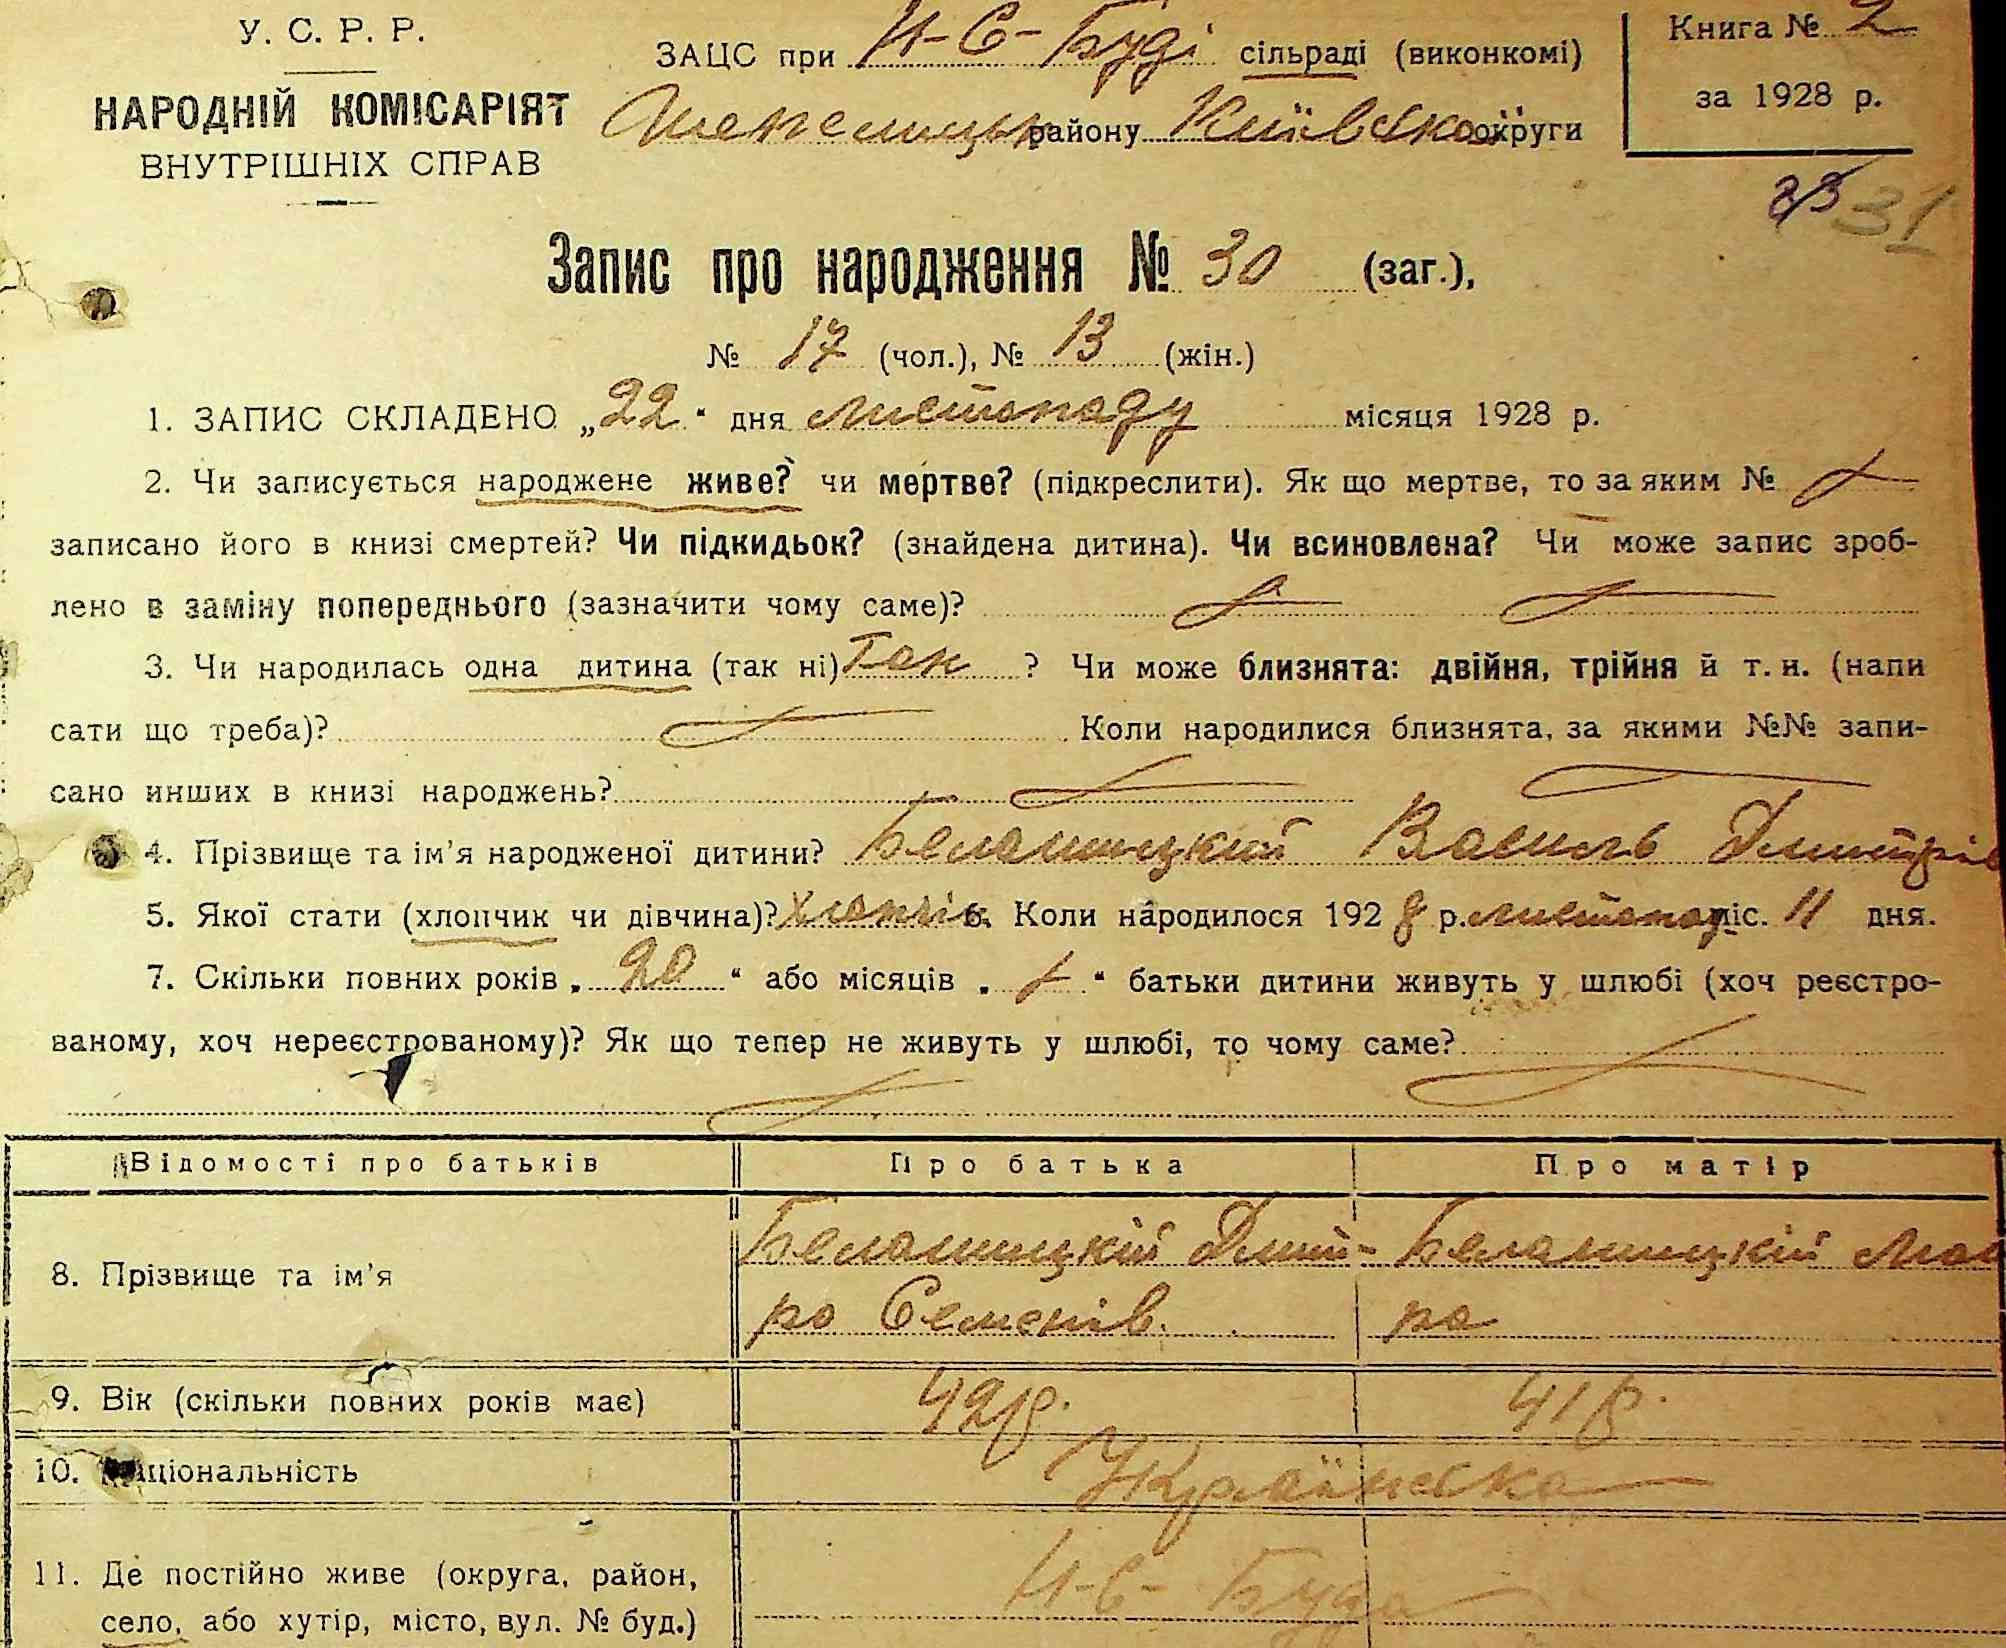 У. С. Р. Р.
НАРОДНІЙ КОМІСАРІЯТ
ВНУТРІШНІХ СПРАВ
ЗАЦС при Н-С- Буді сільраді (виконкомі)
Шепелицьк району Київської округи
Книга № 2
за 1928 р.
31
Запис про народження № 30 (заг.),
№ 17 (чол.), № 13 (жін.)
1. ЗАПИС СКЛАДЕНО „22" дня листопаду місяця 1928 р.
2. Чи записується народжене живе? чи мертве? (підкреслити). Як що мертве, то за яким №
записано його в книзі смертей? Чи підкидьок? (знайдена дитина). Чи всиновлена? Чи може запис зроб-
лено в заміну попереднього (зазначити чому саме)?
3. Чи народилась одна дитина (так ні) Так ? Чи може близнята: двійня, трійня й т. и. (напи
сати що треба)? Коли народилися близнята, за якими №№ запи-
сано инших в книзі народжень?
4. Прізвище та ім'я народженої дитини? Белашицкий Василь Дмитрів
5. Якої стати (хлопчик чи дівчина)? Хлопчік 6. Коли народилося 1928 р. листопаду міс. 11 дня.
7. Скільки повних років „20" або місяців „ " батьки дитини живуть у шлюбі (хоч реєстро-
ваному, хоч нереєстрованому)? Як що тепер не живуть у шлюбі, то чому саме?
Відомості про батьків Про батька Про матір
8. Прізвище та ім'я
Белашицкій Дмит-
ро Семенів.
Белашицкій Мот
ра
9. Вік (скільки повних років має) 42 р. 41 р.
10. Національність Українська
11. Де постійно живе (округа, район,
село, або хутір, місто, вул. № буд.)
Н-С- Буда